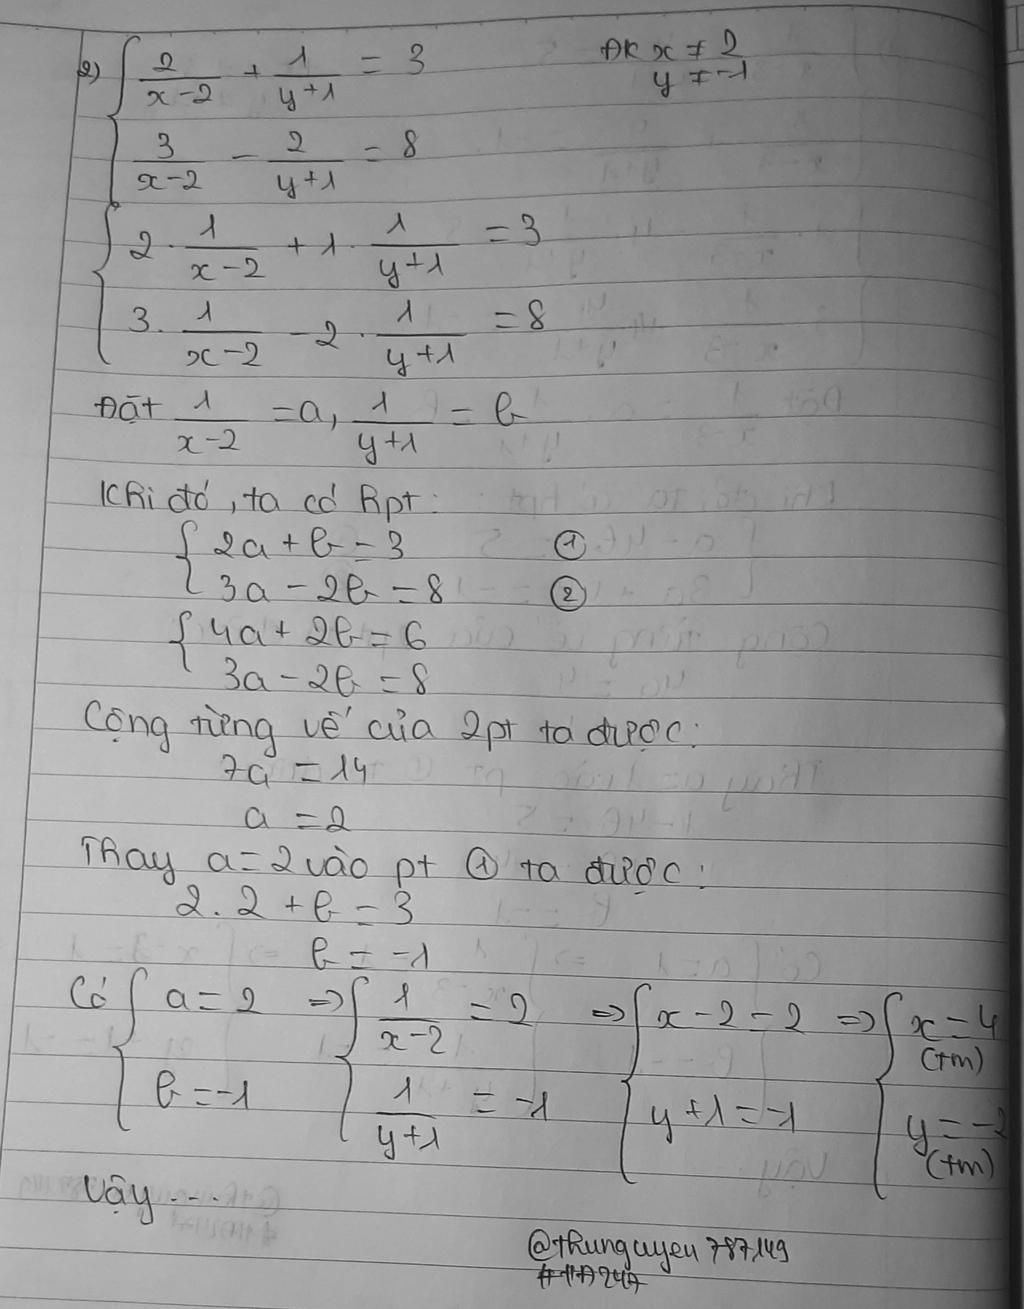 2) { 2/(x-2) + 1/(y+1) = 3 ĐK x ≠ 2
y ≠ -1
3/(x-2) - 2/(y+1) = 8
{ 2 . 1/(x-2) + 1 . 1/(y+1) = 3
3 . 1/(x-2) - 2 . 1/(y+1) = 8
Đặt 1/(x-2) = a, 1/(y+1) = b
Khi đó, ta có hpt:
{ 2a + b = 3 ①
3a - 2b = 8 ②
{ 4a + 2b = 6
3a - 2b = 8
Cộng từng vế của 2pt ta được:
7a = 14
a = 2
Thay a = 2 vào pt ① ta được:
2 . 2 + b = 3
b = -1
Có { a = 2 => { 1/(x-2) = 2 => { x - 2 = 2 => { x = 4 (tm)
b = -1 1/(y+1) = -1 y + 1 = -1 y = -2 (tm)
Vậy ....
@thunguyen787149